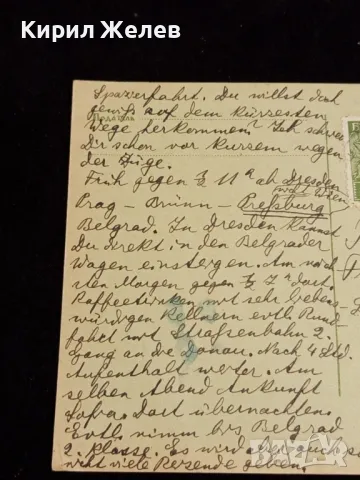 Кирил Желев
Spazierfahrt. Du willst doch
gewiß auf dem kürzesten
Wege herkommen? Ich schrieb
Dir schon vor kurzem wegen
der Züge.
Früh gegen ½ 11 h ab Dresden
nicht Wien
Prag - Brünn - Preßburg
Belgrad. In Dresden kannst
Du direkt in den Belgrader
Wagen einsteigen. Am näch-
sten Morgen gegen ½ 7 h dort.
Kaffeetrinken mit sehr liebens-
würdigen Kellnern evtl. Rund
fahrt mit Straßenbahn 2.
Gang an die Donau. Nach 4 Std.
Aufenthalt weiter. Am
selben Abend Ankunft
Sofia. Dort übernachten.
Evtl. nimm bis Belgrad
2. Klasse. Es wird aber auch
nicht viele Reisende geben.
bazar